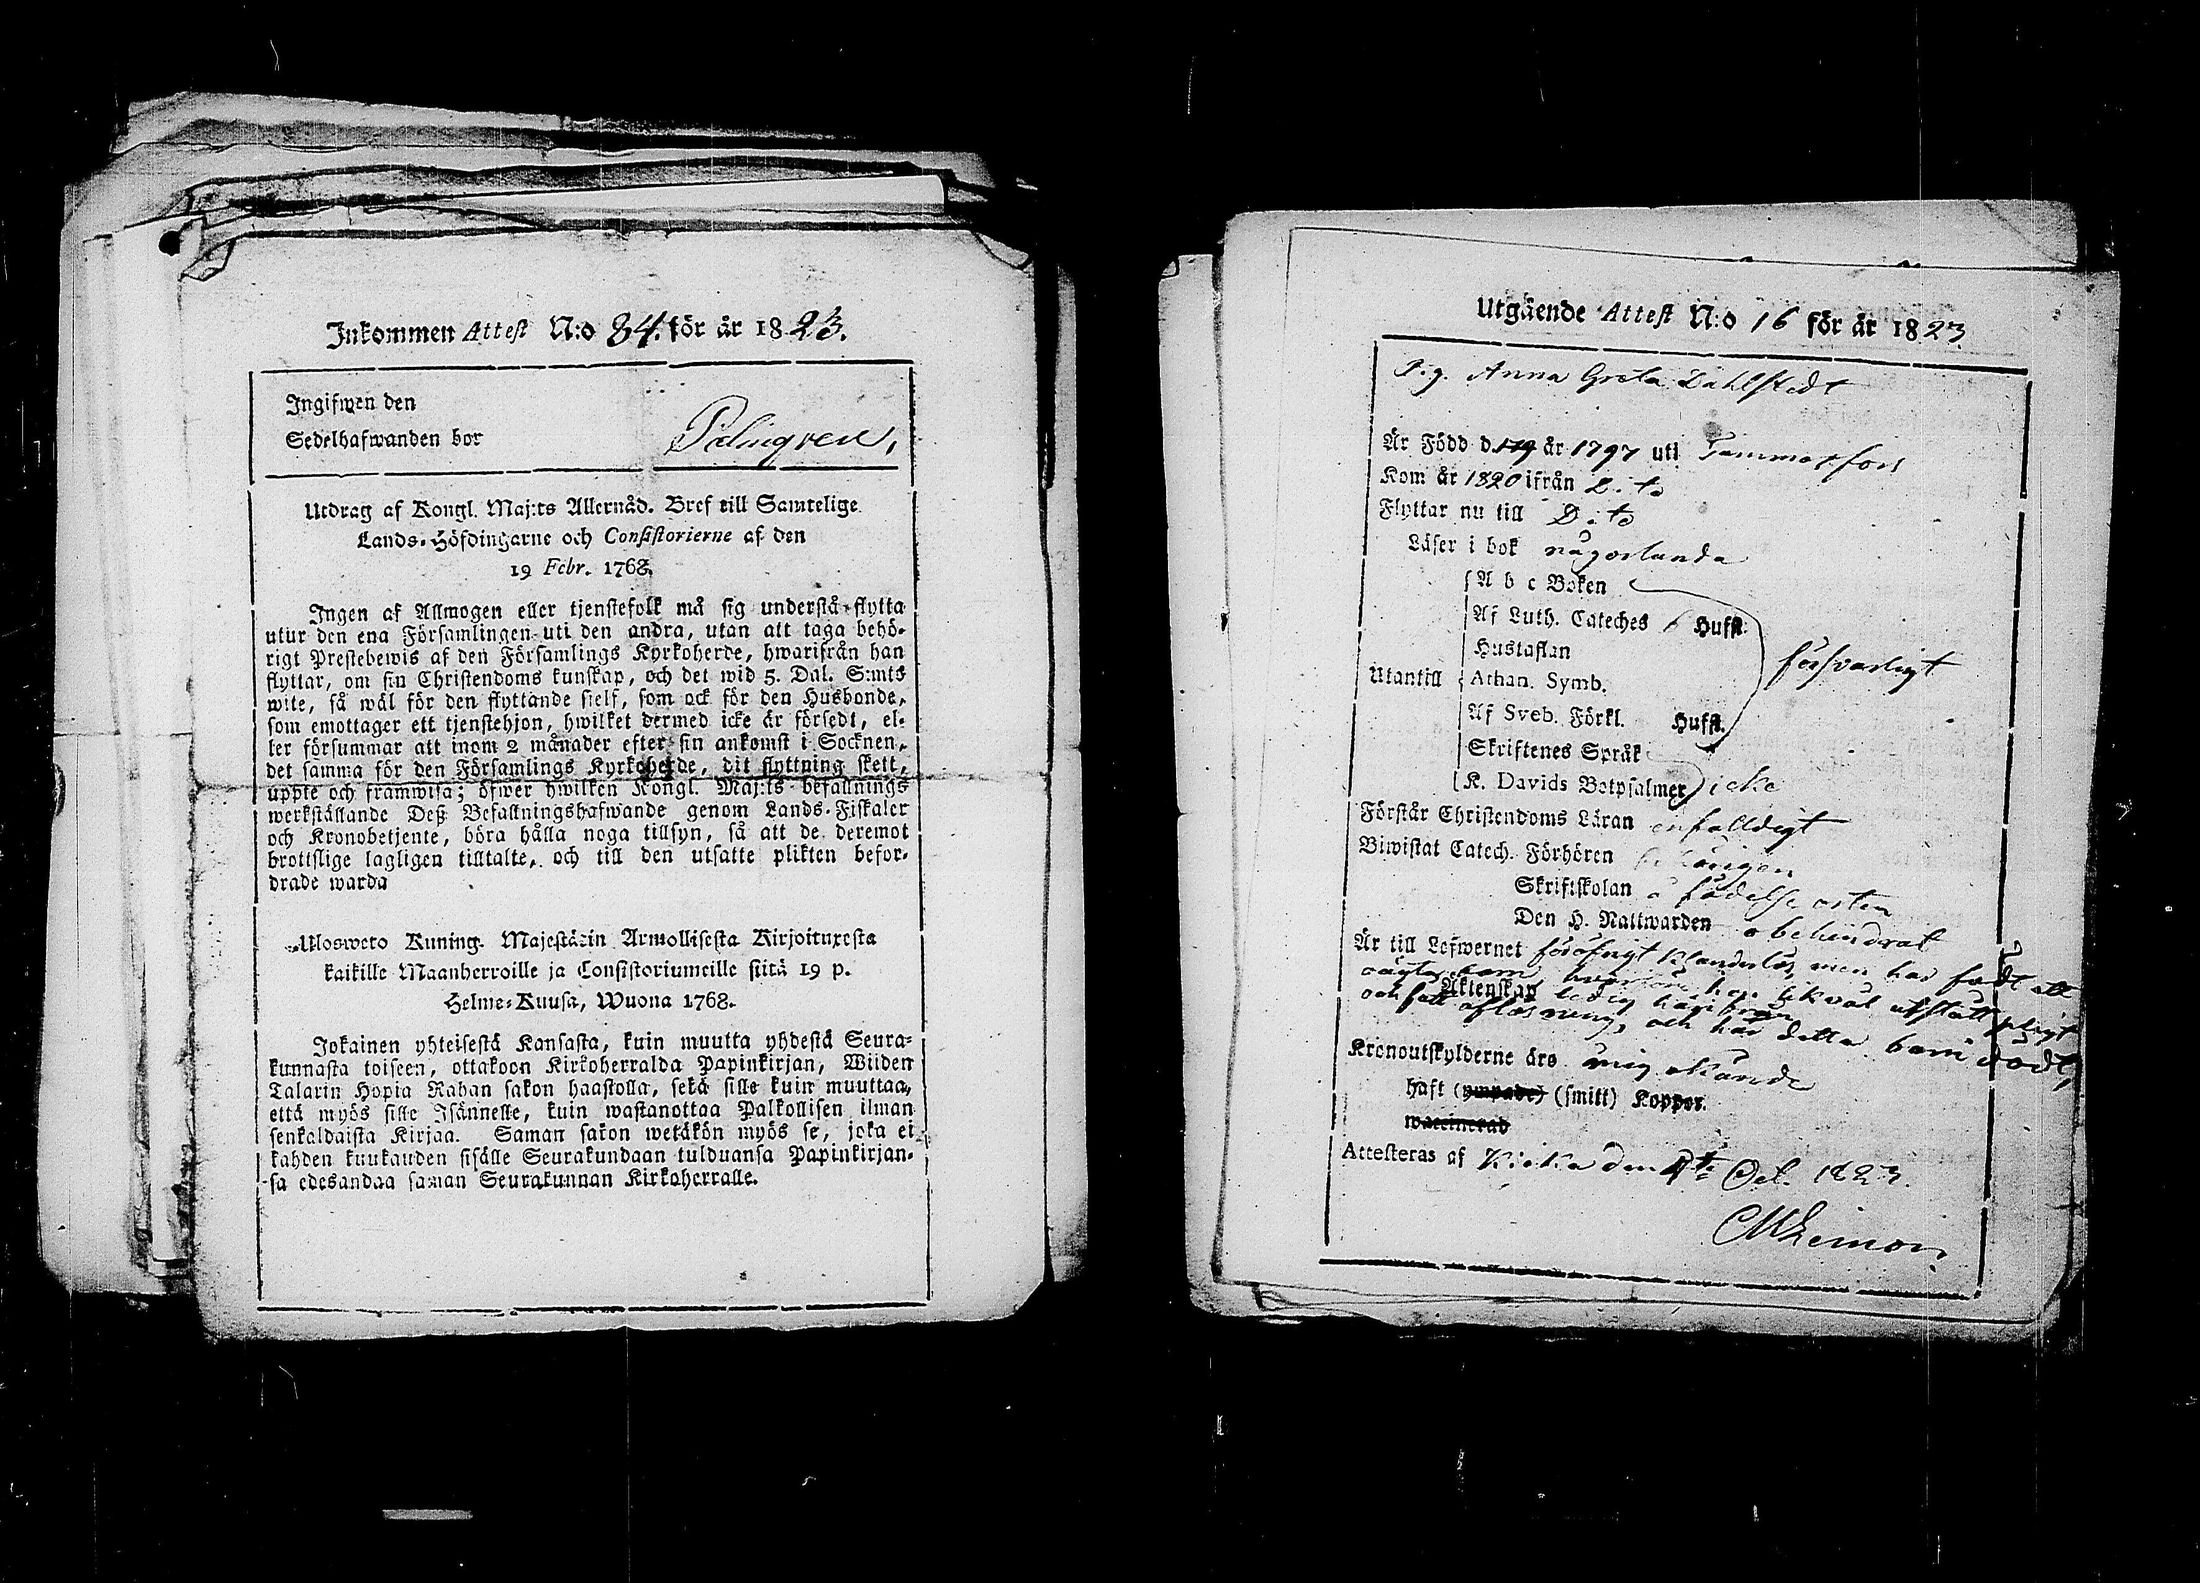 Inkommen Attest N:o 84. för år 1823.
Ingifwen den
Sedelhafwanden bor Palmqren,
Utdrag af Kongl. Maj:ts Allernåd. Bref till Samtelige
Lands-Höfdingarne och Consistorierne af den
19 Febr. 1768.
Ingen af Allmogen eller tjenstefolk må sig understå flytta
utur den ena Församlingen uti den andra, utan att taga behö-
rigt Prestebewis af den Församlings Kyrkoherde, hwarifrån han
flyttar, om sin Christendoms kunskap, och det wid 5. Dal. S:mts
wite, så wäl för den flyttande sielf, som ock för den Husbonde,
som emottager ett tjenstehjon, hwilket dermed icke är försedt, el-
ler försummar att inom 2 månader efter sin ankomst i Socknen,
det samma för den Församlings Kyrkoherde, dit flyttning skett,
uppte och framwisa; öfwer hwilken Kongl. Maj:ts befallnings
werkställande Deß Befallningshafwande genom Lands-Fiskaler
och Kronobetjente, böra hålla noga tillsyn, så att de deremot
brottslige lagligen tilltalte, och till den utsatte plikten befor-
drade warda
Ulosweto Kuning. Majestätin Armollisesta Kirjoituxesta
kaikille Maanherroille ja Consistoriumeille siitä 19 p.
Helme-Kuusa, Wuona 1768.
Jokainen yhteisestä Kansasta, kuin muutta yhdestä Seura-
kunnasta toiseen, ottakoon Kirkoherralda Papinkirjan, Wiiden
Talarin Hopia Rahan sakon haastolla, sekä sille kuin muuttaa,
että myös sille Isännelle, kuin wastanottaa Palkollisen ilman
senkaldaista Kirjaa. Saman sakon wetäkön myös se, joka ei
kahden kuukauden sisälle Seurakundaan tulduansa Papinkirjan-
sa edesandaa saman Seurakunnan Kirkoherralle.
Utgående Attest N:o 16 för år 1823
Pig. Anna Greta Dahlstedt
Är Född d. år 1797 uti Tammerfors
Kom år 1820 ifrån Dito
Flyttar nu till Dito
Läser i bok någorlunda
A b c Boken
Af Luth. Cateches Hufst.
Hustaflan
Utantill Athan. Symb. försvarligt
Af Sveb. Förkl. Hufst.
Skriftenes Språk
K. Davids Botpsalmer icke
Förstår Christendoms Läran enfalldigt
Biwistat Catech. Förhören
Skriftskolan å födelse orten
Den H. Nattwarden obehindrat
Är till Lefwernet föröfrigt klanderlös, men har födt ett
oägta barn hvarföre hon likväl utstått pligt
Äktenskap ledig härifrån
och fått aflösning, och har detta barn dödt,
Kronoutskylderne äro mig okände
haft (ympade) (smitt) Koppor.
waccinerad
Attesteras af Kjeka den 4de Oct. 1823.